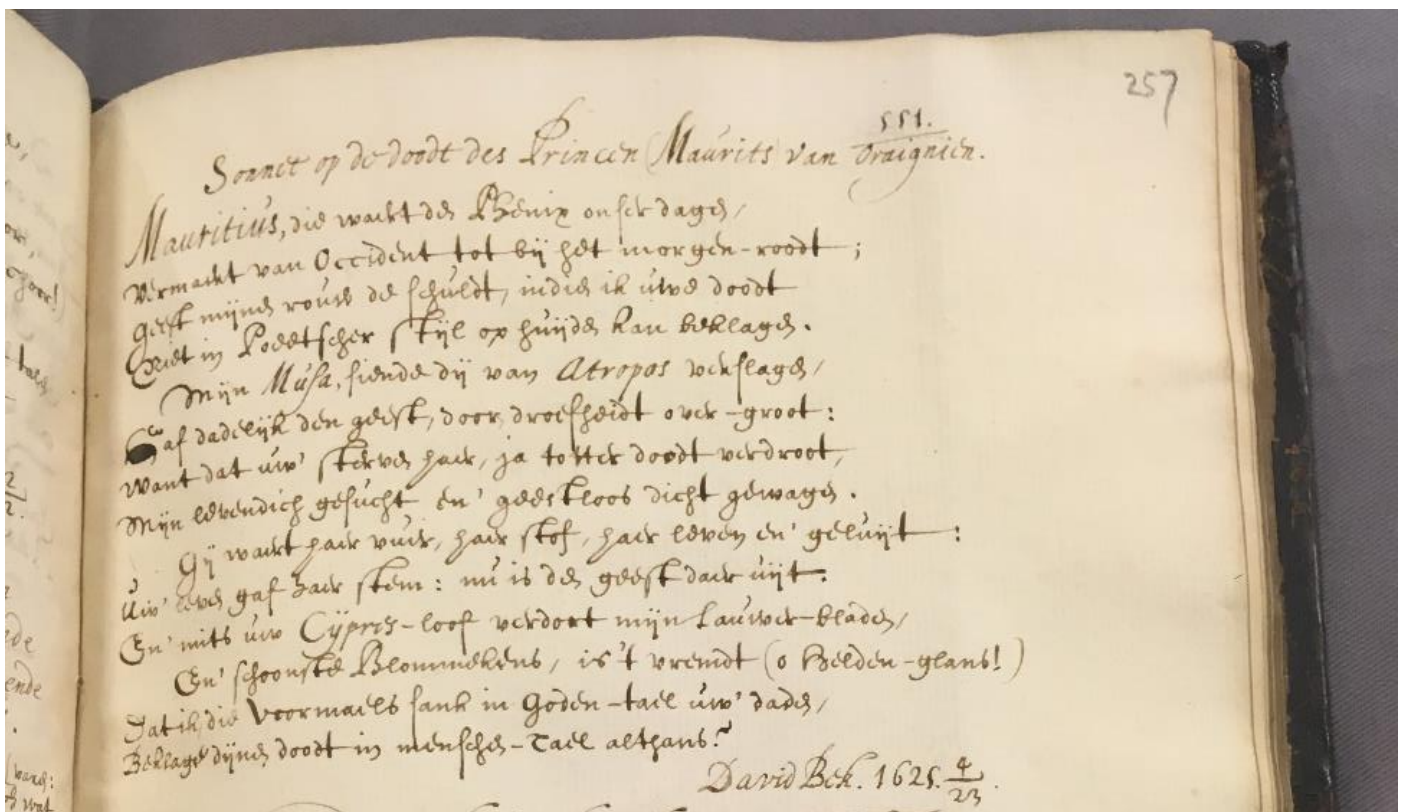 257
551.
Sonnet op de doodt des Princen Maurits van Oraignien.
Mauritius, die waert den Phenix onser dagen,
Vermaert van Occident tot bij het morgen-roodt;
Geeft mijnen rouwe de schuldt, indien ik uwe doodt
Niet in Poëetscher stijl op huijden kan beklagen.
Mijn Musa, siende dij van Atropos verslagen,
Gaf dadelijk den geest, door droefheidt over-groot:
Want dat uw' sterven haer, ja totter doodt verdroot,
Mijn levendich gesucht en' geestloos dicht gewagen.
Gij waert haer vuir, haer stof, haer leven en' geluijt:
Uw' leven gaf haer stem: nu is den geest daer uijt.
En' mits uw Cypres-loof verdort mijn Lauwer-bladen,
En' schoonste Blommekens, is 't vremdt (o Helden-glans!)
Dat ik, die voormaels sank in Goden-tael uw' daden,
Beklage dijnen doodt in menschen-tael althans?
David Bek. 1625. 4/23.